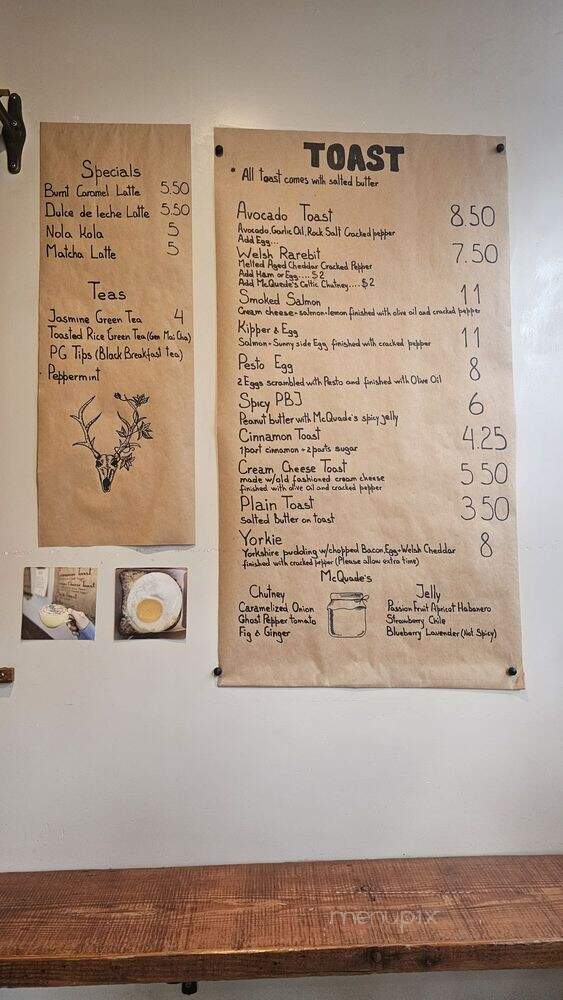 Specials
Burnt Caramel Latte 5.50
Dulce de leche Latte 5.50
Nola Kola 5
Matcha Latte 5
Teas
Jasmine Green Tea 4
Toasted Rice Green Tea (Gen Mai Cha)
PG Tips (Black Breakfast tea)
Peppermint
TOAST
* All toast comes with salted butter
Avocado Toast 8.50
Avocado, Garlic Oil, Rock Salt Cracked pepper
Add Egg...
Welsh Rarebit 7.50
Melted Aged Cheddar Cracked Pepper
Add Ham or Egg....$2
Add McQuade's Celtic Chutney....$2
Smoked Salmon 11
Cream cheese+salmon+lemon finished with olive oil and cracked pepper
Kipper & Egg 11
Salmon+Sunny side Egg, finished with cracked pepper
Pesto Egg 8
2 Eggs scrambled with Pesto and finished with Olive Oil
Spicy PBJ 6
Peanut butter with McQuade's spicy jelly
Cinnamon Toast 4.25
1 part cinnamon + 2 parts sugar
Cream Cheese Toast 5 50
made w/old fashioned cream cheese
finished with olive oil and cracked pepper
Plain Toast 3 50
Salted butter on toast
Yorkie 8
Yorkshire pudding w/chopped Bacon, Egg+Welsh Cheddar
finished with cracked pepper (Please allow extra time)
McQuade's
Chutney
Caramelized Onion
Ghost Pepper tomato
Fig & Ginger
Jelly
Passion Fruit Apricot Habanero
Strawberry Chile
Blueberry Lavender (Not Spicy)
menupix